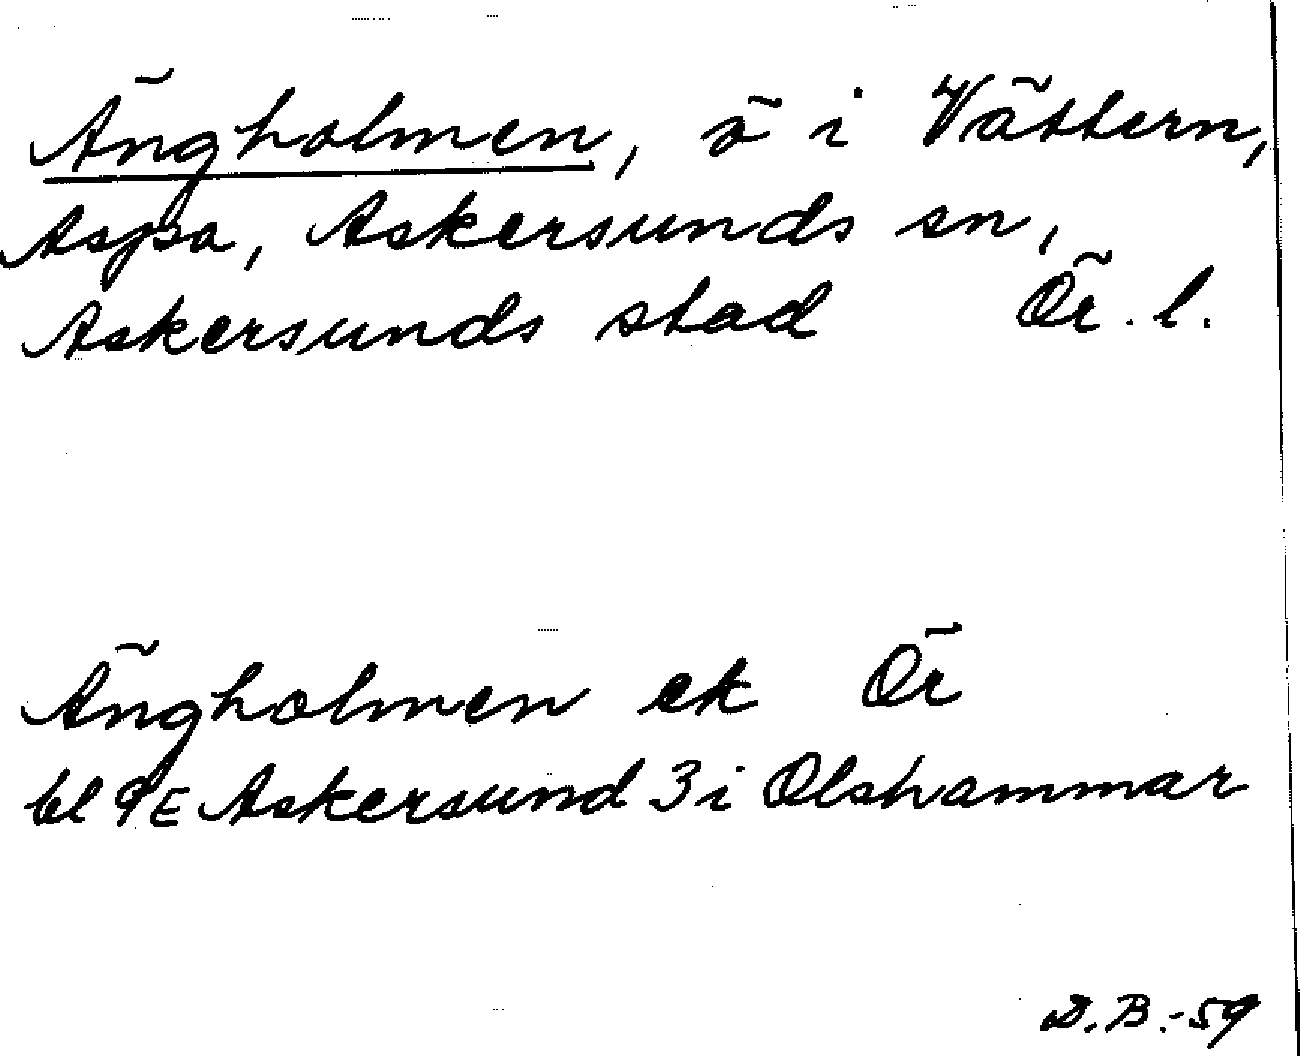 Ängholmen, ö i Vättern,
Aspa, Askersunds sn,
Askersunds stad Ör. l.
Ängholmen ek Ör
bl 9E Askersund 3 i Olshammar
D.B.-59